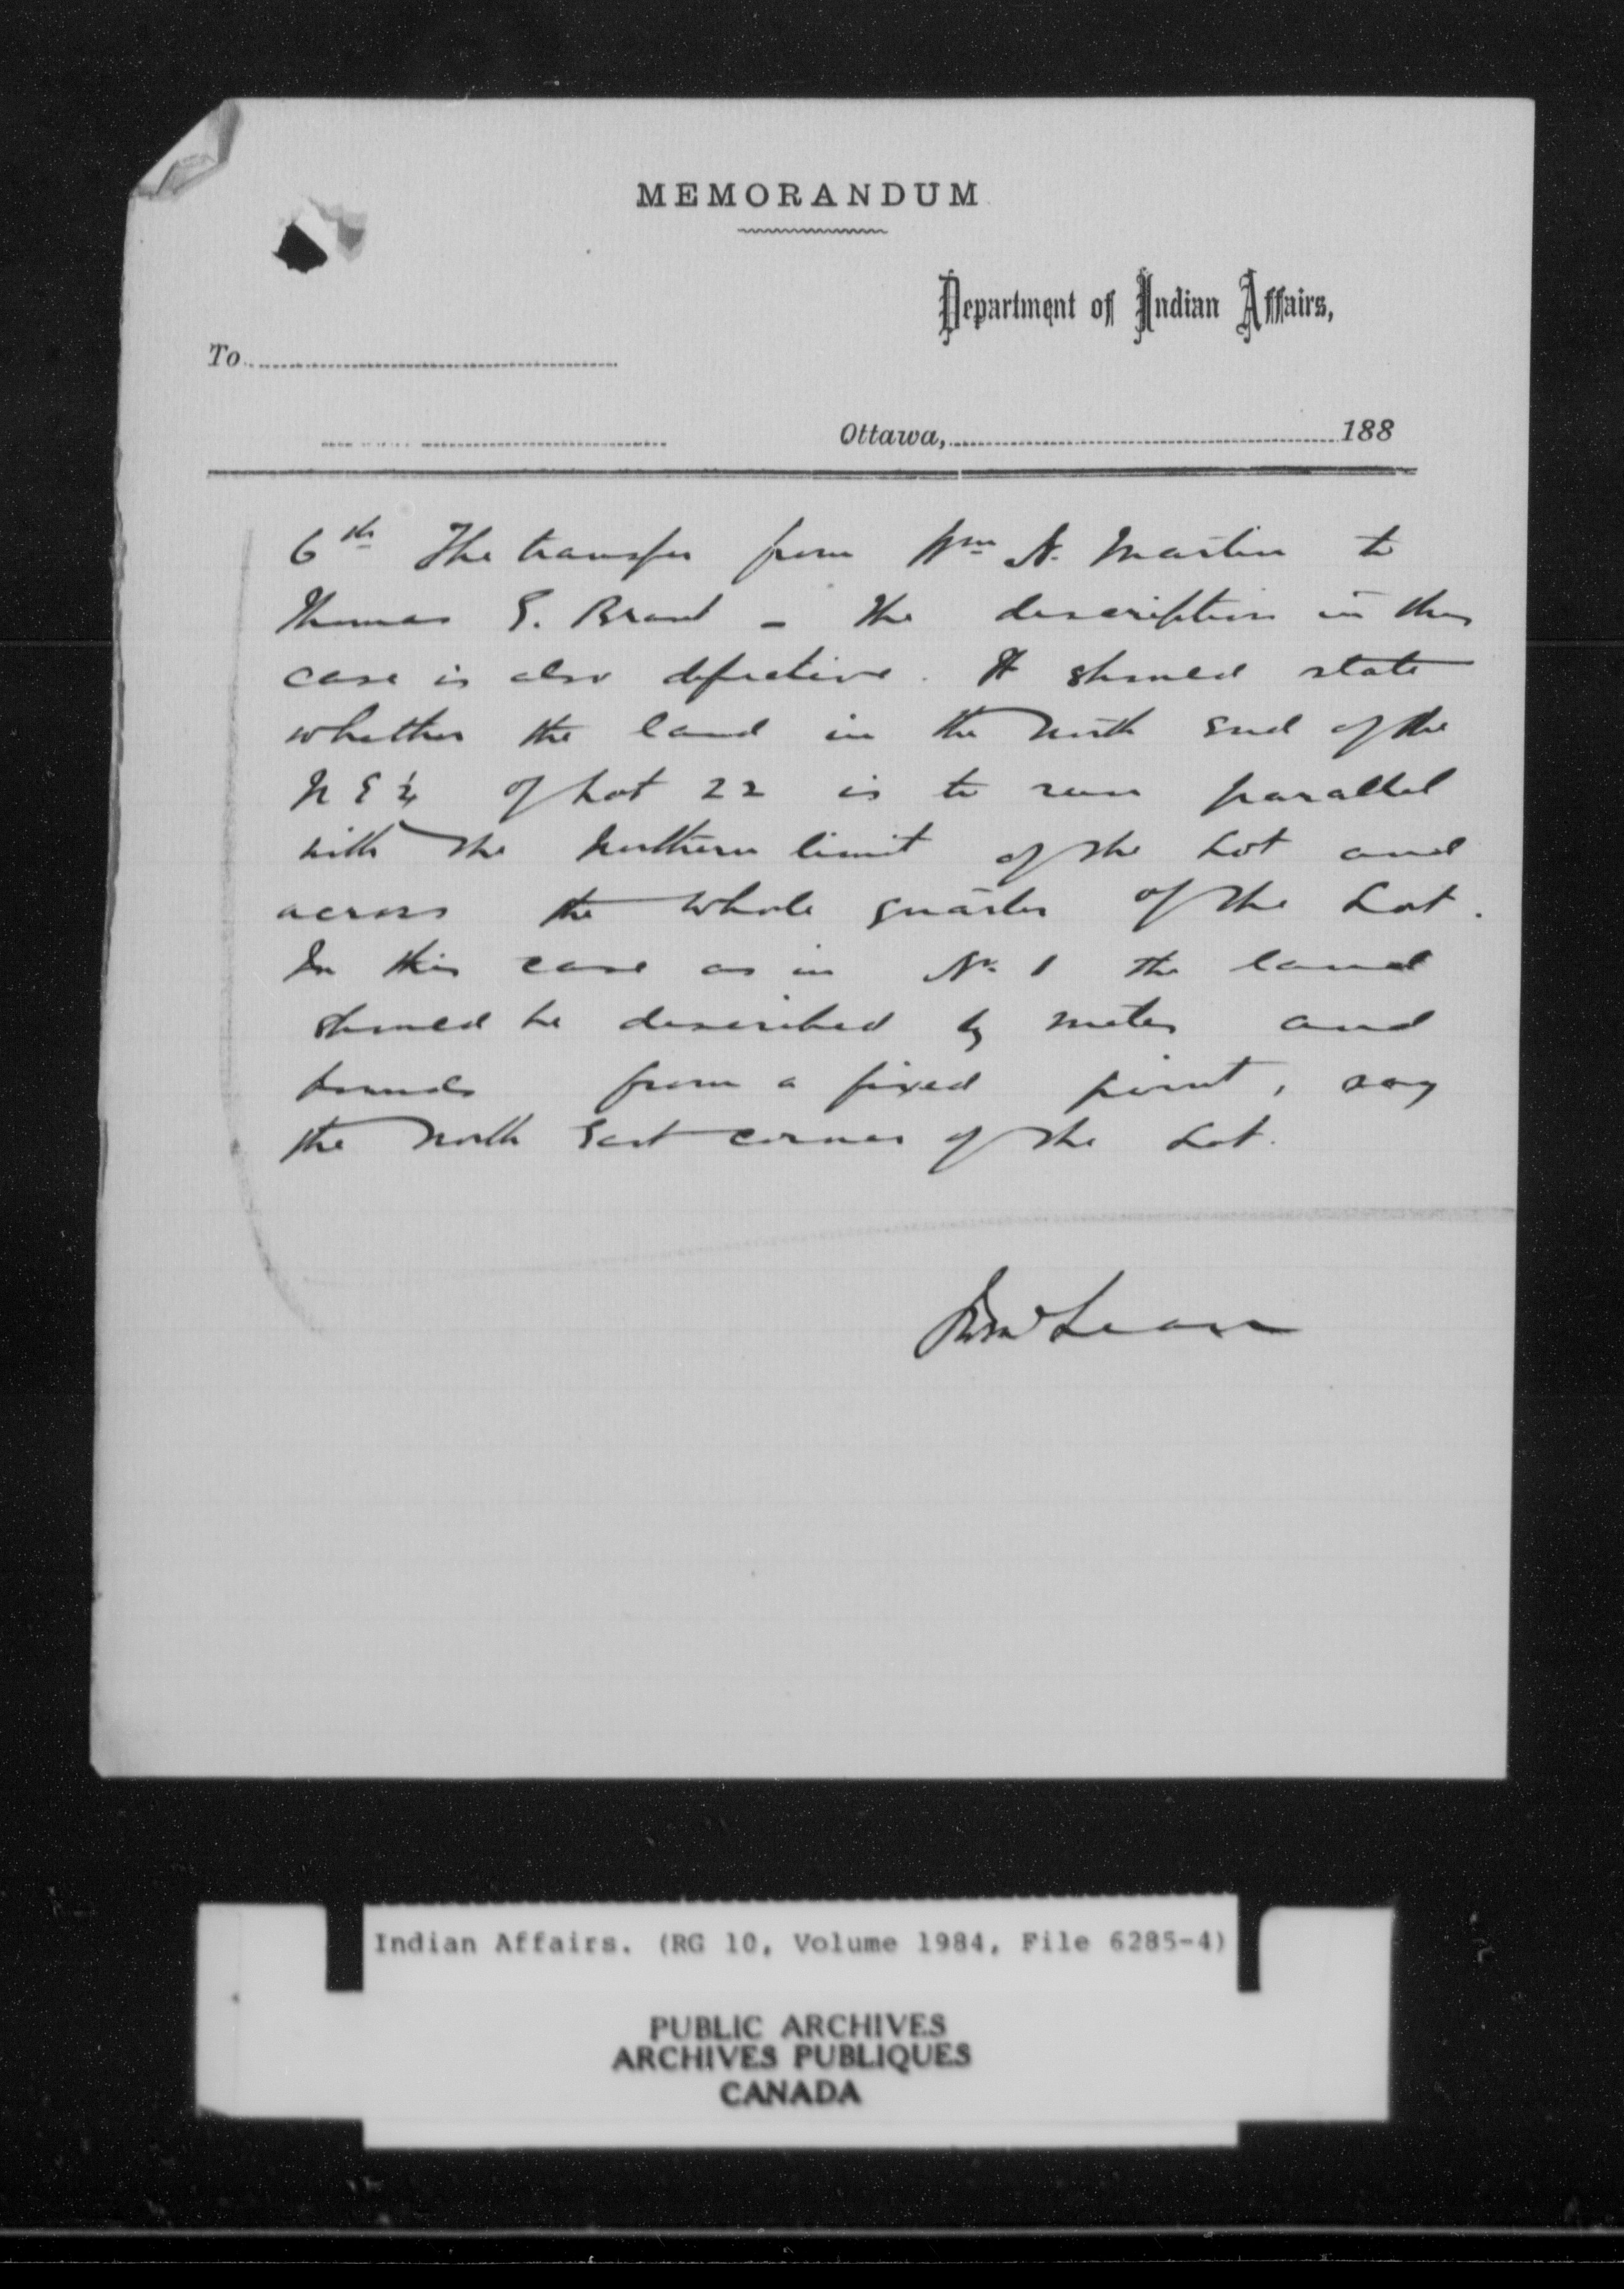 MEMORANDUM
Department of Indian Affairs,
To
Ottawa, 188
6th The transfer from Wm N. Martin to
Thomas G. Brant - the description in this
case is also defective. It should state
whether the land in the North End of the
N E ¼ of Lot 22 is to run parallel
with the Northern limit of the Lot and
across the whole quarter of the Lot.
In this case as in No. 1 the land
should be described by metes and
bounds from a fixed point, say
the North East corner of the Lot.
McLean
Indian Affairs. (RG 10, Volume 1984, File 6285-4)
PUBLIC ARCHIVES
ARCHIVES PUBLIQUES
CANADA